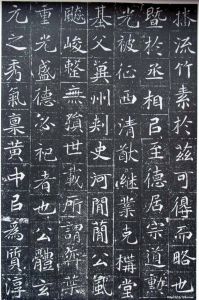 播流竹素於茲可得而略也
暨於丞相㠯至德居宗道勳
光被征西清猷繼業克構堂
基父冀州刺史河間簡公
飈峻整無殞世載所謂
重光盛德必祀者也公體玄
元之秀氣稟黃中㠯為質淳